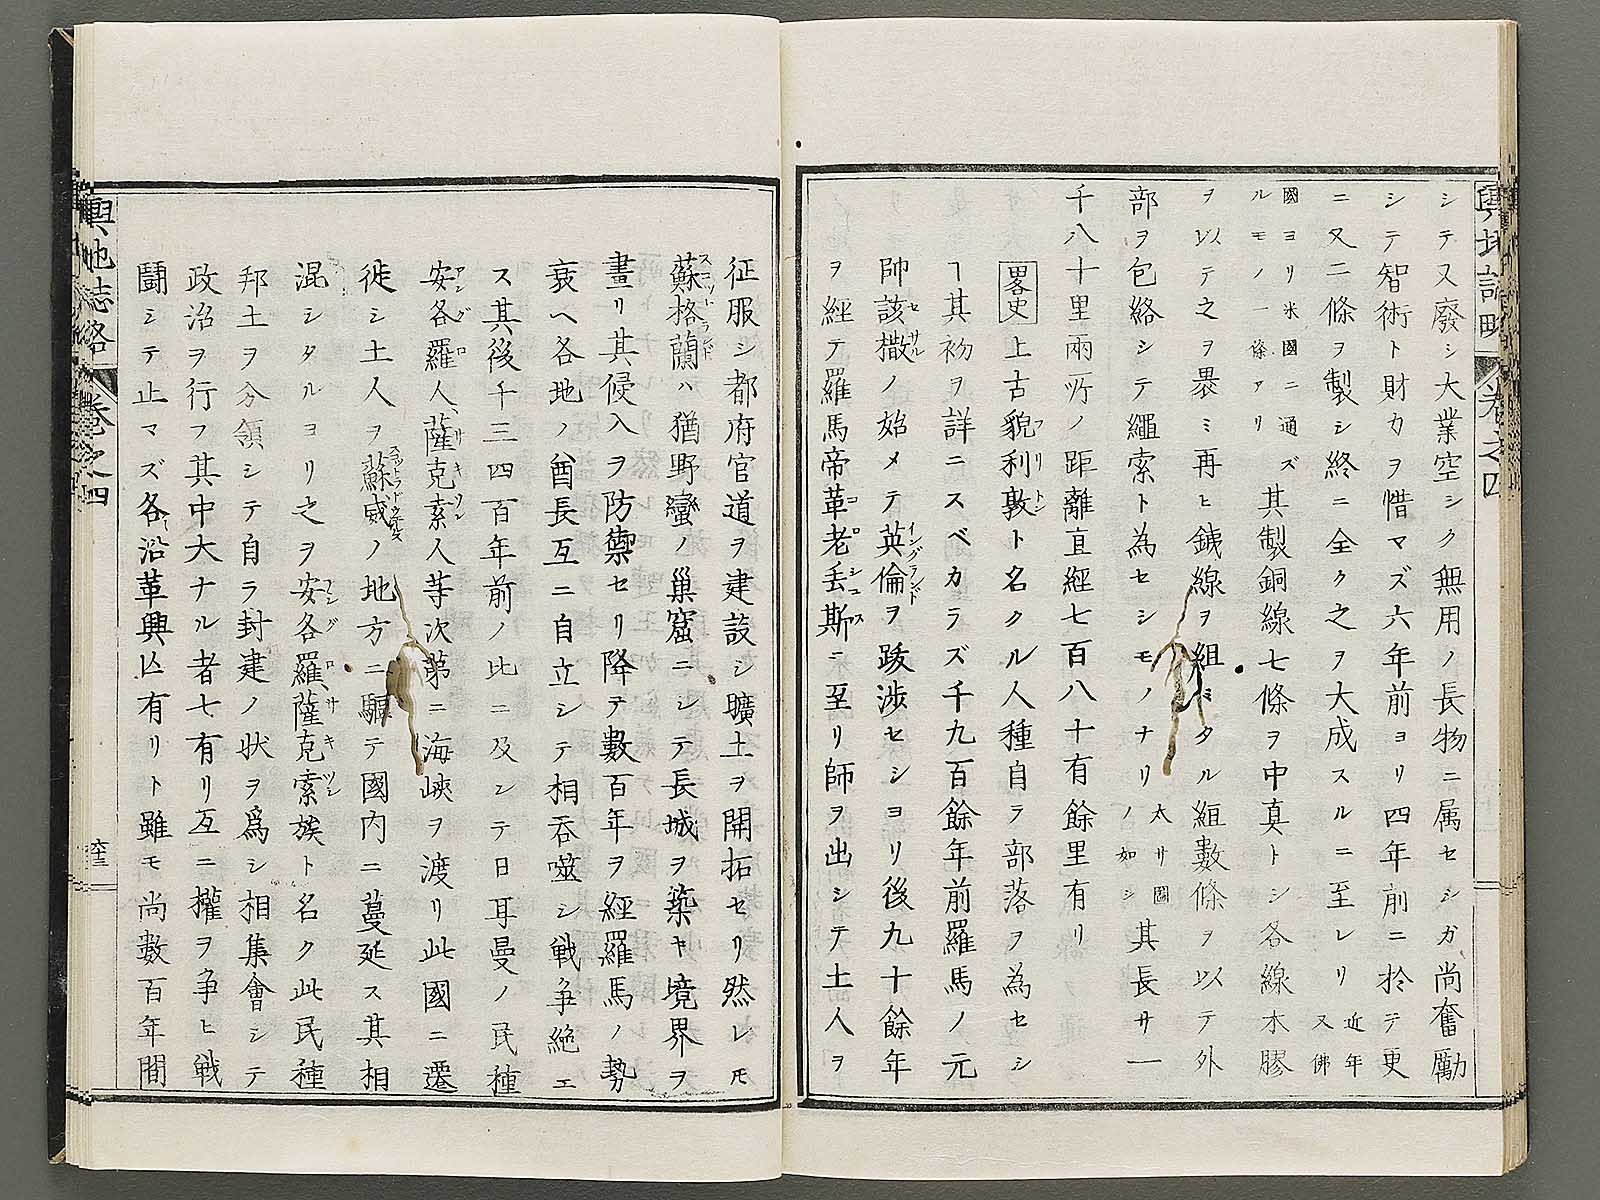 輿地誌略 卷之四
シテ又廢シ大業空シク無用ノ長物ニ属セシガ尚奮勵
シテ智術ト財力ヲ惜マズ六年前ヨリ四年前ニ於テ更
ニ又二條ヲ製シ終ニ全ク之ヲ大成スルニ至レリ近年又佛
國ヨリ米國ニ通ズルモノ一條アリ其製銅線七條ヲ中真トシ各線木膠
ヲ以テ之ヲ褁ミ再ヒ銕線ヲ組ミタル組數條ヲ以テ外
部ヲ包絡シテ繩索ト為セシモノナリ太サ圖ノ如シ其長サ一
千八十里兩所ノ距離直經七百八十有餘里有リ
畧史 上古貌利敦ト名クル人種自ラ部落ヲ為セシ
ヿ其初ヲ詳ニスベカラズ千九百餘年前羅馬ノ元
帥該撒ノ始メテ英倫ヲ跋渉セシヨリ後九十餘年
ヲ經テ羅馬帝革老丢斯ニ至リ師ヲ出シテ土人ヲ
征服シ都府官道ヲ建設シ曠土ヲ開拓セリ然レモ
蘇格蘭ハ猶野蠻ノ巢窟ニシテ長城ヲ築キ境界ヲ
畫リ其侵入ヲ防禦セリ降テ數百年ヲ經羅馬ノ勢
衰ヘ各地ノ酋長互ニ自立シテ相呑噬シ戦争絶エ
ス其後千三四百年前ノ比ニ及ンテ日耳曼ノ民種
安各羅人、薩克索人等次第ニ海峽ヲ渡リ此國ニ遷
徙シ土人ヲ蘇威ノ地方ニ驅テ國内ニ蔓延ス其相
混シタルヨリ之ヲ安各羅薩克索族ト名ク此民種
邦土ヲ分領シテ自ラ封建ノ状ヲ爲シ相集會シテ
政治ヲ行フ其中大ナル者七有リ互ニ權ヲ争ヒ戦
鬪シテ止マズ各沿革興亾有リト雖モ尚數百年間
輿地誌略 卷之四